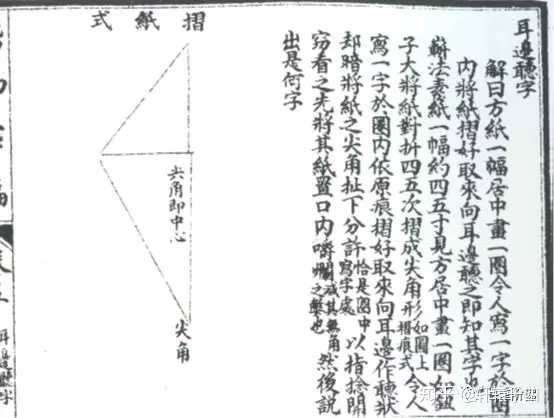 耳邊聽字
解曰方紙一幅居中畫一圈令人寫一字於圈
內將紙摺好取來向耳邊聽之即知其字也
法表紙一幅約四五寸見方居中畫一圈如鈕
子大將紙對折四五次摺成尖角形如圖上摺痕式令人
寫一字於圈內依原痕摺好取來向耳邊作聽狀
却暗將紙之尖角扯下分許恰是圈中寫字處以指捻開
窃看之先將其紙置口內嚼爛滅其無角之弊也然後說
出是何字
摺紙式
尖角即中心
尖角
耳邊聽字
知乎